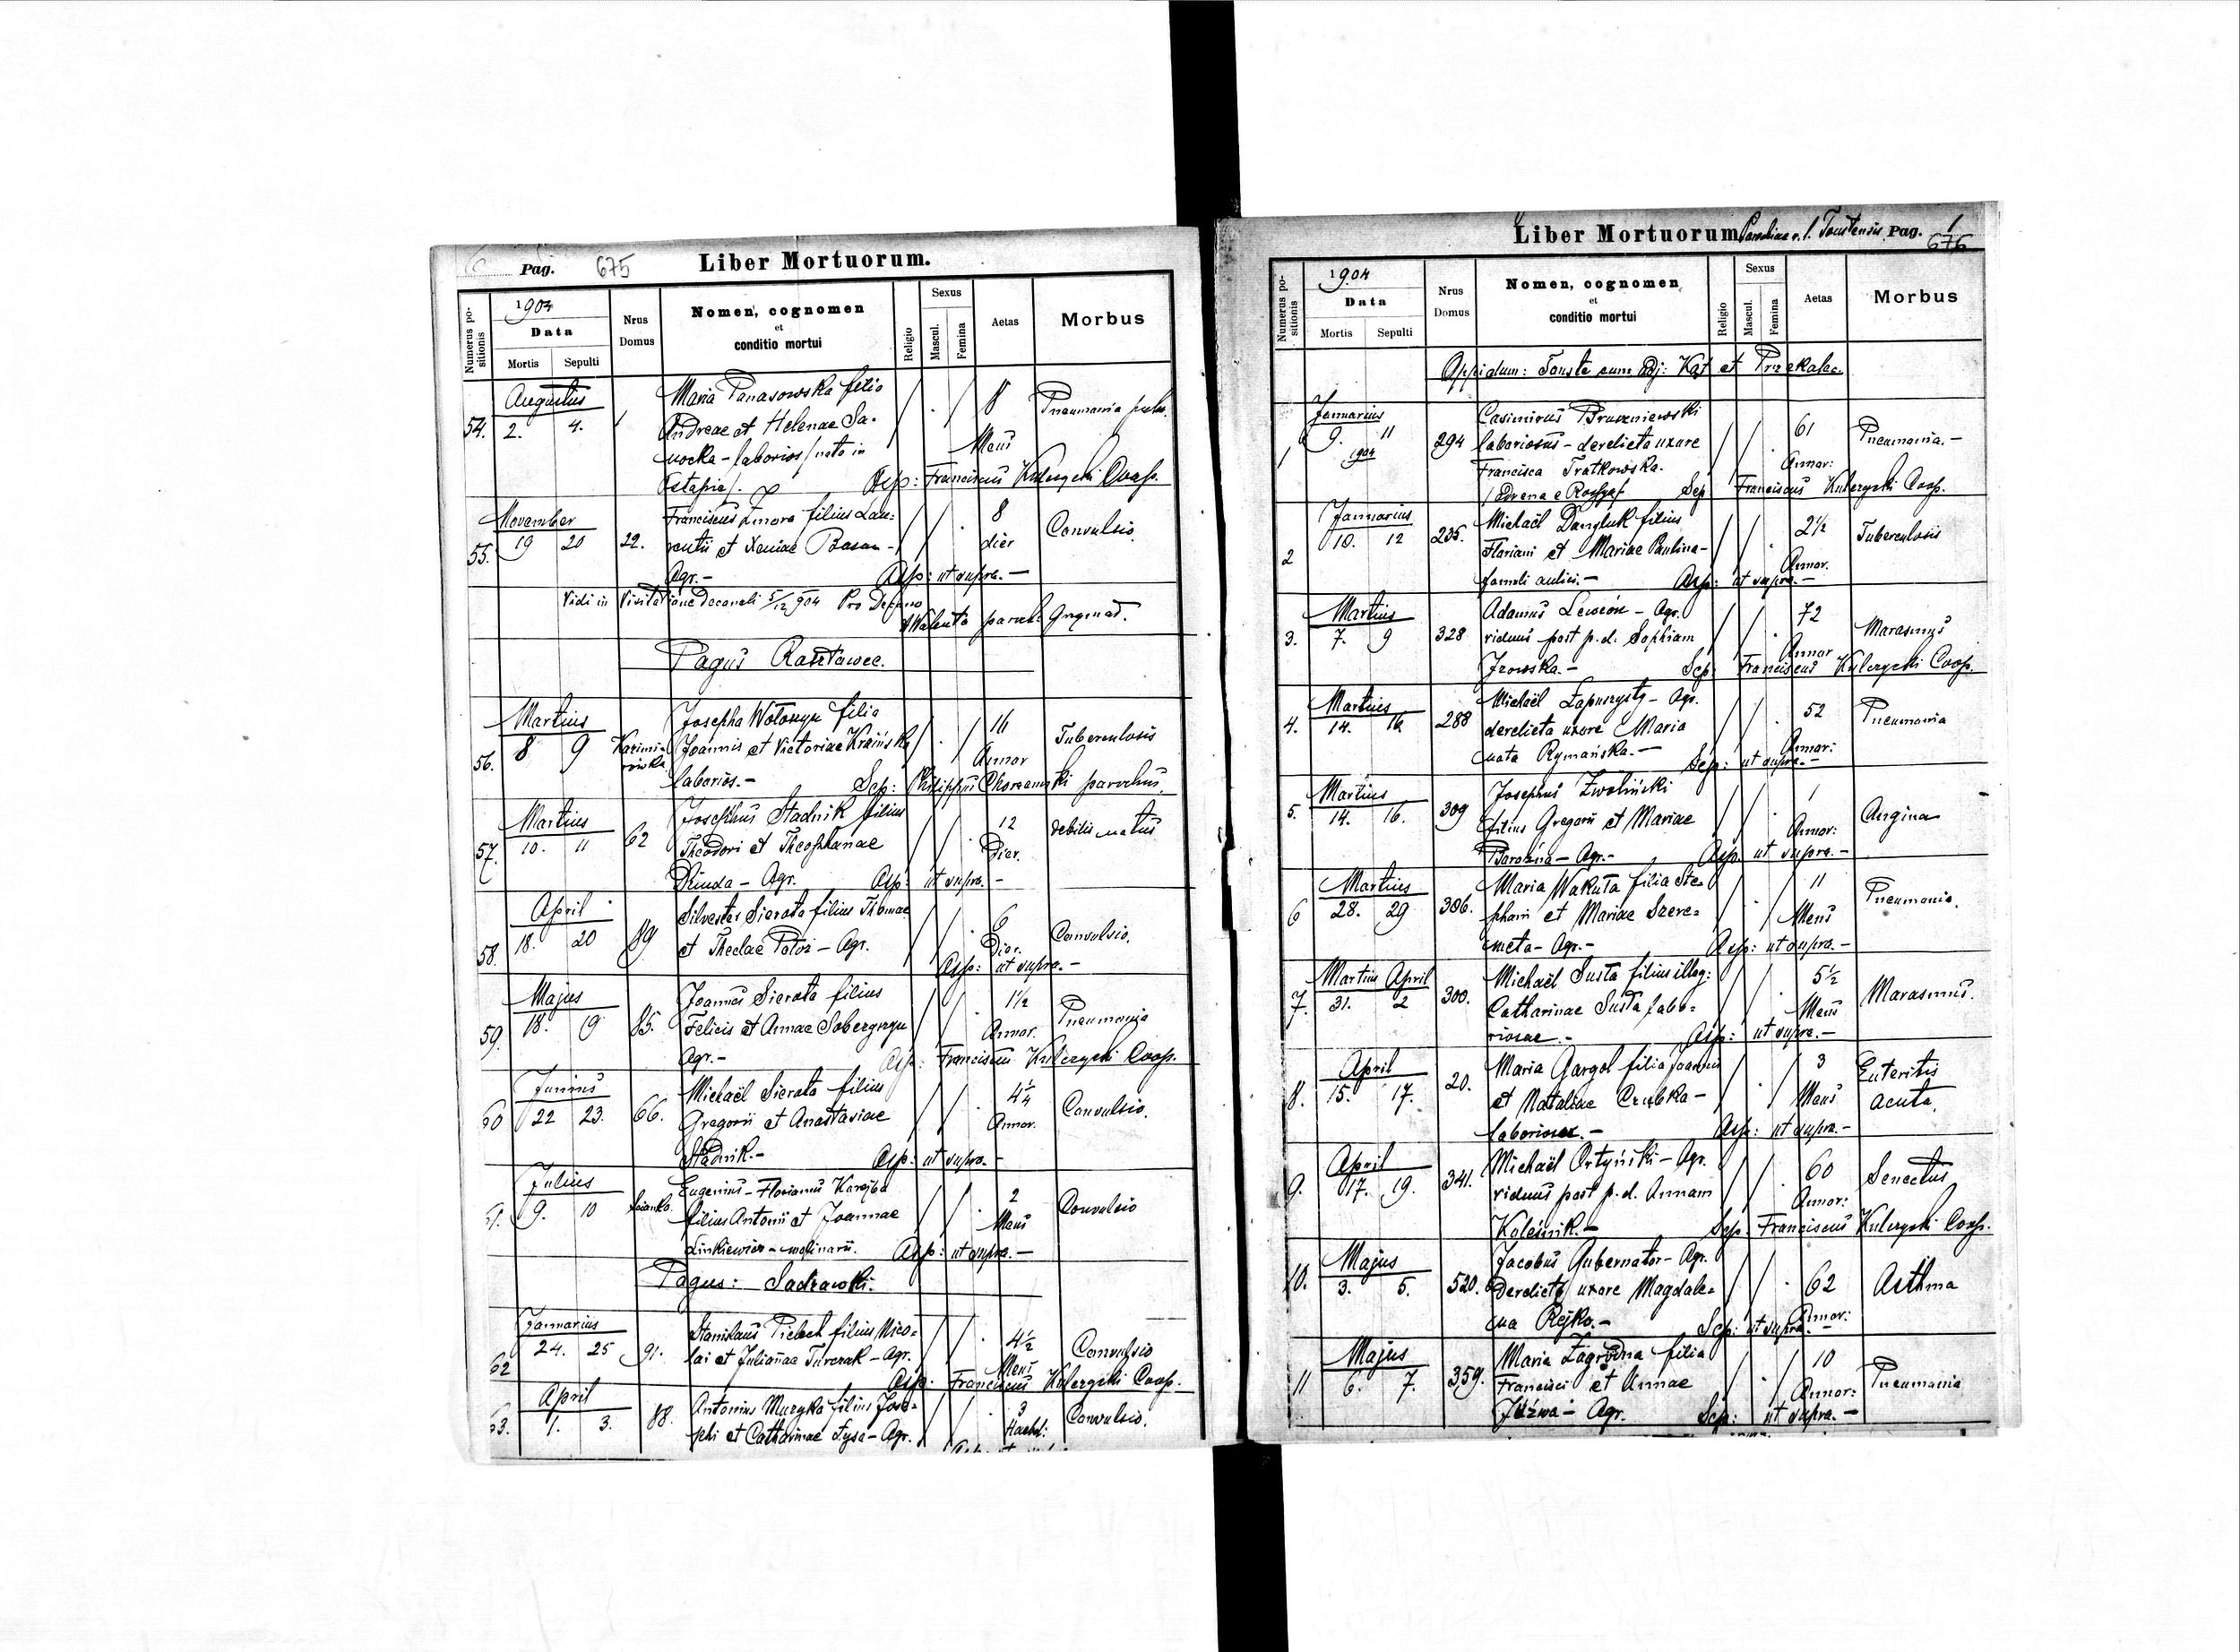 Pag. 675 Liber Mortuorum.
Numerus positionis
1903
Data
Mortis Sepulti
Nrus Domus
Nomen, cognomen
et
conditio mortui
Religio
Sexus
Mascul. Femina
Aetas
Morbus
Augustus
54. 2. 4. 1 Maria Panasowska filia 8 Pneumonia
Andreae et Helenae Sa-
nocka - laborios /nata in Mens
Ostapie/. Asp: Franciscus Kulczycki Coop.
November
55. 19 20 22. Franciscus Zmora filius Lau- 8 Convulsio.
rentii et Xeniae Basan - dier
Agr. - Asp: ut supra. -
Vidi in Visitatione decanali 5/12 904 Pro Decano
paroch: Grzymał.
Pagus Rasztawce.
Martius
56. 8 9 Kazimirówka Josepha Wołoszyn filia 16 Tuberculosis
Joannis et Victoriae Kraińska Annor
laborios. - Sep: Philippus parochus.
Martius
57. 10. 11 62 Josephus Stadnik filius 12 debilis natus
Theodori et Theophanae Dier.
Dziuda - Agr. Asp: ut supra. -
April
58. 18. 20 89 Silvester Sierota filius Thomae 6 Convulsio.
et Theclae - Agr. Dier.
Asp: ut supra. -
Majus
59. 18. 19 85. Joannes Sierota filius 1 1/2 Pneumonia
Felicis et Annae Annor.
Agr. - Asp: Franciscus Kulczycki Coop.
Junius
60 22 23. 66. Michaël Sierota filius 4 1/4 Convulsio.
Gregorii et Anastasiae Annor.
Stadnik. - Asp: ut supra. -
Julius
61. 9. 10 Eugenius - Florianus 2 Convulsio
filius Antonii et Joannae Mens
Linkiewicz - molinarii. Asp: ut supra. -
Pagus: Sadzawki.
Januarius
62 24. 25 91. Stanislaus Pielech filius Nico- 4 1/2 Convulsio
lai et Julianae Turczak - Agr. Mens
Asp: Franciscus Kulczycki Coop.
April
63. 1. 3. 88. Antonius Muzyka filius Jose- 3 Convulsio.
phi et Catharinae Łysa - Agr. Hebd:
Liber Mortuorum Parochiae r. l. Toustensis Pag. 1
676
Numerus positionis
1904
Data
Mortis Sepulti
Nrus Domus
Nomen, cognomen
et
conditio mortui
Religio
Sexus
Mascul. Femina
Aetas
Morbus
Oppidum: Touste cum Adj: Kąt et Przekalec
Januarius
1 9. 11 294 Casimirus 61 Pneumonia. -
1904 laboriosus - derelicta uxore
Francisca Tratkowska. Annor:
Sep Franciscus Kulczycki Coop.
Januarius
2 10. 12 235. Michaël Danyluk filius 2 1/2 Tuberculosis
Floriani et Mariae Paulina -
famuli aulici. - Annor. Asp: ut supra. -
Martius
3. 7. 9 328 Adamus Lewcón - Agr. 72 Marasmus
viduus post p. d. Sophiam Annor
Jzowska. - Sep: Franciscus Kulczycki Coop.
Martius
4. 14. 16 288 Michaël Łapuszysty - Agr. 52 Pneumonia
derelicta uxore Maria
nata Rymańska. - Annor: Sep: ut supra. -
Martius
5. 14. 16. 309 Josephus Zwoliński 1 Angina
filius Gregorii et Mariae Annor:
Agr. - Asp. ut supra. -
Martius
6 28. 29 306. Maria Wakuła filia Ste- 11 Pneumonia.
phani et Mariae Szere- Mens
meta - Agr. - Asp: ut supra. -
Martius April
7. 31. 2 300. Michaël Susła filius illeg: 5 1/2 Marasmus.
Catharinae Susła labo- Mens
riosae. - Asp: ut supra. -
April
8. 15. 17. 20. Maria Gargol filia Joannis 3 Enteritis
et Nataliae Czubka - Mens acuta.
laboriosae. - Asp: ut supra. -
April
9. 17. 19. 341. Michaël Ortyński - Agr. 60 Senectus
viduus post p. d. Annam Annor:
Koleśnik. - Sep: Franciscus Kulczycki Coop.
Majus
10. 3. 5. 520. Jacobus Gubernator - Agr. 62 Asthma
derelicta uxore Magdale-
na Rejko. - Annor: Sep: ut supra. -
Majus
11 6. 7. 359. Maria Zagródna filia 10 Pneumonia
Francisci et Annae Annor:
Józwa - Agr. Sep: ut supra. -